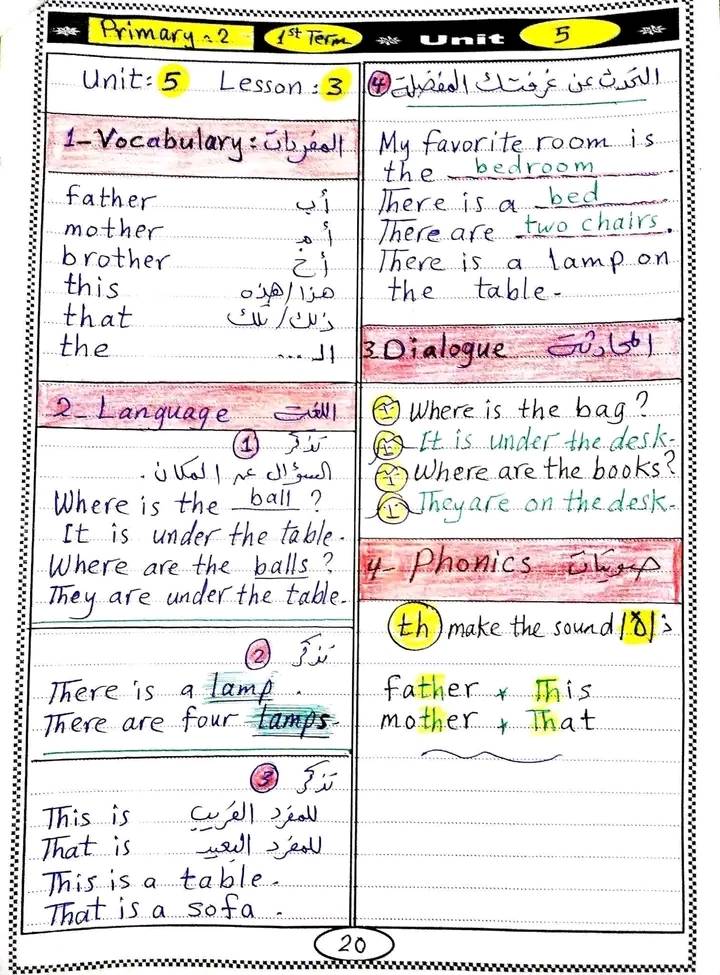 Primary 2 1st Term Unit 5
Unit: 5 Lesson: 3
1- Vocabulary: المفردات
father أب
mother أم
brother أخ
this هذا/هذه
that ذلك/تلك
the الـ ....
2- Language اللغة
تذكر 1
السؤال عن المكان.
Where is the ball?
It is under the table.
Where are the balls?
They are under the table.
تذكر 2
There is a lamp.
There are four lamps.
تذكر 3
This is للمفرد القريب
That is للمفرد البعيد
This is a table.
That is a sofa.
4 التحدث عن غرفتك المفضلة
My favorite room is
the bedroom
There is a bed
There are two chairs.
There is a lamp on
the table.
3 Dialogue المحادثة
Where is the bag?
It is under the desk.
Where are the books?
They are on the desk.
4- Phonics صوتيات
th make the sound /ð/ ذ
father * This
mother * That
20